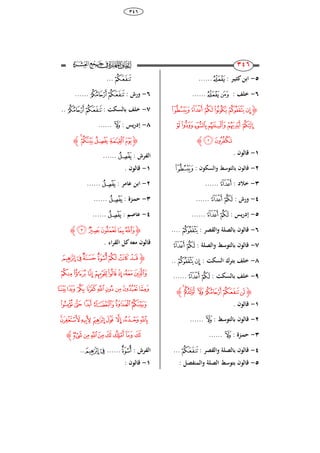 ٣٤٦
٣٤٦
٥- ابن كثير : يَفْعَلْهُۥ ......
٦- خلف : وَمَن يَفْعَلْهُ ......
﴿ إِن يَثْقَفُوكُمْ يَكُونُوا۟ لَكُمْ أَعْدَآءً وَيَبْسُطُوٓا۟
إِلَيْكُمْ أَيْدِيَهُمْ وَأَلْسِنَتَهُم بِٱلسُّوٓءِ وَوَدُّوا۟ لَوْ
تَكْفُرُونَ ﴾
١- قالون .
٢- قالون بالتوسط والسكون : وَيَبْسُطُوٓا۟
٣- خلاد : أَعْدَآءً ......
٤- ورش : لَكُمْ أَعْدَآءً ......
٥- إدريس : لَكُمْ أَعْدَآءً ......
٦- قالون بالصلة والقصر : يَثْقَفُوكُمْ ....
٧- قالون بالتوسط والصلة : لَكُمْ أَعْدَآءً
٨- خلف بترك السكت : إِن يَثْقَفُوكُمْ ..
٩- خلف بالسكت : لَكُمْ أَعْدَآءً ......
﴿ لَن تَنفَعَكُمْ أَرْحَامُكُمْ وَلَآ أَوْلَٰدُكُمْ ﴾
١- قالون .
٢- قالون بالتوسط : وَلَآ ......
٣- حمزة : وَلَآ ......
٤- قالون بالصلة والقصر : تَنفَعَكُمْ ...
٥- قالون بتوسط الصلة والمنفصل :
تَنفَعَكُمْ ...
٦- ورش : تَنفَعَكُمْ أَرْحَامُكُمْ ......
٧- خلف بالسكت : تَنفَعَكُمْ أَرْحَامُكُمْ ..
٨- إدريس : وَلَآ ......
﴿ يَوْمَ ٱلْقِيَٰمَةِ يَفْصِلُ بَيْنَكُمْ ﴾
الفرش : يَفْصِلُ ......
١- قالون .
٢- ابن عامر : يُفَصَّلُ ......
٣- حمزة : يُفَصِّلُ ......
٤- عاصم : يَفْصِلُ ......
﴿ وَٱللَّهُ بِمَا تَعْمَلُونَ بَصِيرٌ ﴾
قالون معه كل القراء .
﴿ قَدْ كَانَتْ لَكُمْ أُسْوَةٌ حَسَنَةٌ فِىٓ إِبْرَٰهِيمَ
وَٱلَّذِينَ مَعَهُۥٓ إِذْ قَالُوا۟ لِقَوْمِهِمْ إِنَّا بُرَءَٰٓؤُا۟ مِنكُمْ
وَمِمَّا تَعْبُدُونَ مِن دُونِ ٱللَّهِ كَفَرْنَا بِكُمْ وَبَدَا بَيْنَنَا
وَبَيْنَكُمُ ٱلْعَدَٰوَةُ وَٱلْبَغْضَآءُ أَبَدًا حَتَّىٰ تُؤْمِنُوا۟
بِٱللَّهِ وَحْدَهُۥٓ إِلَّا قَوْلَ إِبْرَٰهِيمَ لِأَبِيهِ لَأَسْتَغْفِرَنَّ
لَكَ وَمَآ أَمْلِكُ لَكَ مِنَ ٱللَّهِ مِن شَىْءٍ ﴾
الفرش : أُسْوَةٌ ...... فِىٓ إِبْرَٰهِيمَ..
١- قالون :